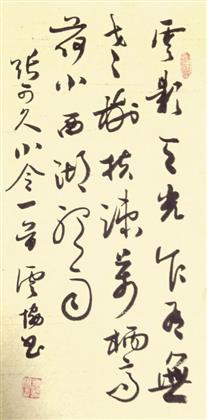 雲影天光乍有無
老樹扶疎萬柄高
荷小西湖聽雨
張可久小令一首雲協書